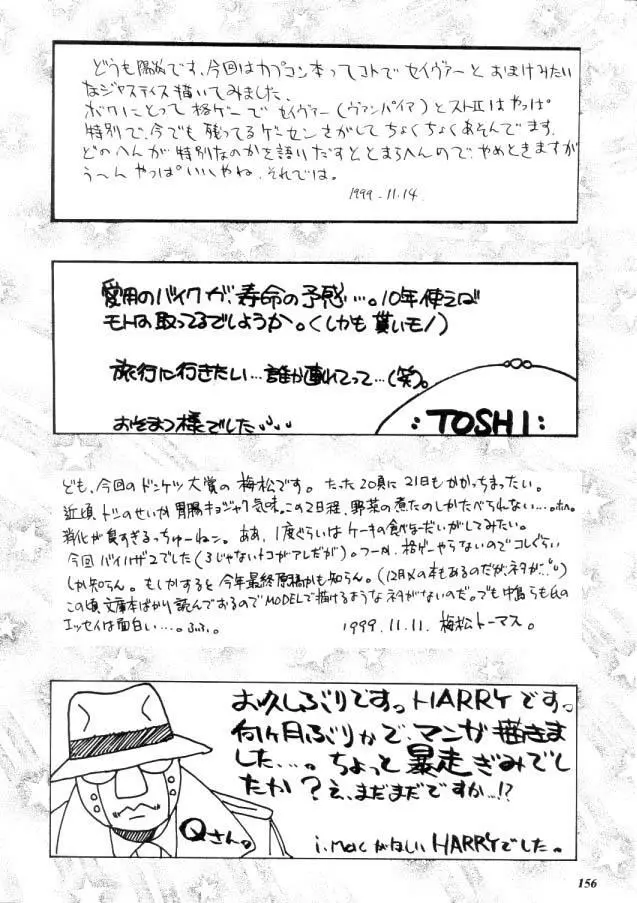 どうも陽気です。今回はカプコン本ってコトでセイヴァーとおまけみたい
なジャスティス描いてみました。
ボクにとって格ゲーでセイヴァー(ヴァンパイア)とストⅡはやっぱ
特別で、今でも残ってるゲーセンさがしてちょくちょくあそんでます。
どのへんが特別なのかを語りだすととまらへんので、やめときますが
う〜んやっぱいいやね、それでは。
1999.11.14
愛用のバイクが、寿命の予感…。10年使えば
モトは取ってるでしょうか。(しかも貰いモノ)
旅行に行きたい…誰か連れてって…(笑)。
おそまつ様でした
:TOSHI:
ども、今回のドンケツ大賞の梅松です。たった20頁に21日もかかっちまったい。
近頃、トシのせいか胃腸キョジャク気味。この2日程、野菜の煮たのしかたべられない…。
消化が良すぎるっちゅーねン。ああ、1度ぐらいはケーキの食べほーだいがしてみたい。
今回バイハザ2でした(3じゃないトコがアレだが)。つーか、格ゲーやらないのでコレぐらい
しか知らん。もしかすると今年最終原稿かも知らん。(12月〆の本もあるのだが、ネタが…)
この頃、文庫本ばかり読んでおるのでMODELで描けるようなネタがないのだ。でも中島らも氏の
エッセイは面白い…。ふふ。 1999.11.11. 梅松トーマス。
お久しぶりですっHARRYですっ
何ヶ月ぶりかで、マンガ描きま
した…。ちょっと暴走ぎみでし
たか?え、まだまだですか…!?
Qさん。
i.Macがほしい HARRYでした。
156